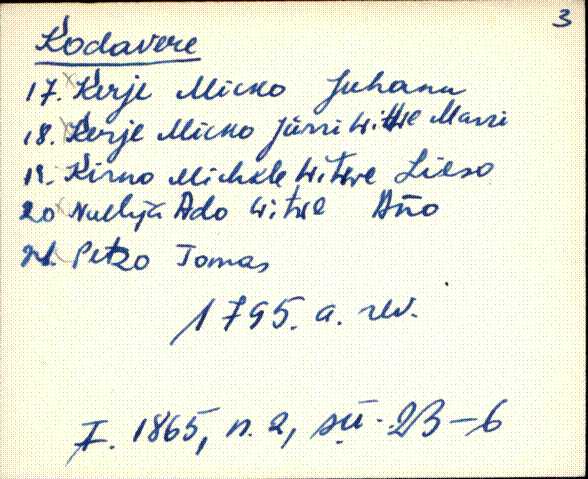 3
Kodavere
17. Kerje Micko Juhann
18. Kerje Micko Jürri Wittwe Marri
19. Kirno Michkle Witwe Liiso
20 Ado Witwe Ano
21. Petzo Tomas
1795. a. rev.
F. 1865, n. 2, sü. 23-6